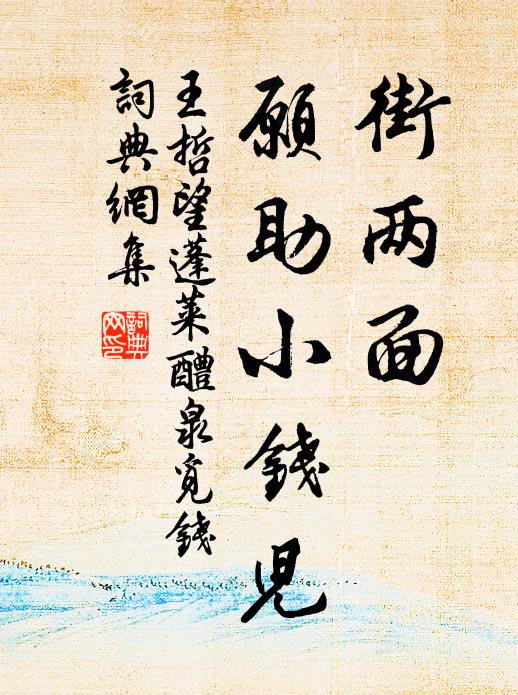 街两面
願助小錢兒
王哲望蓬萊醴泉覓錢
詞典網集
詞典网印